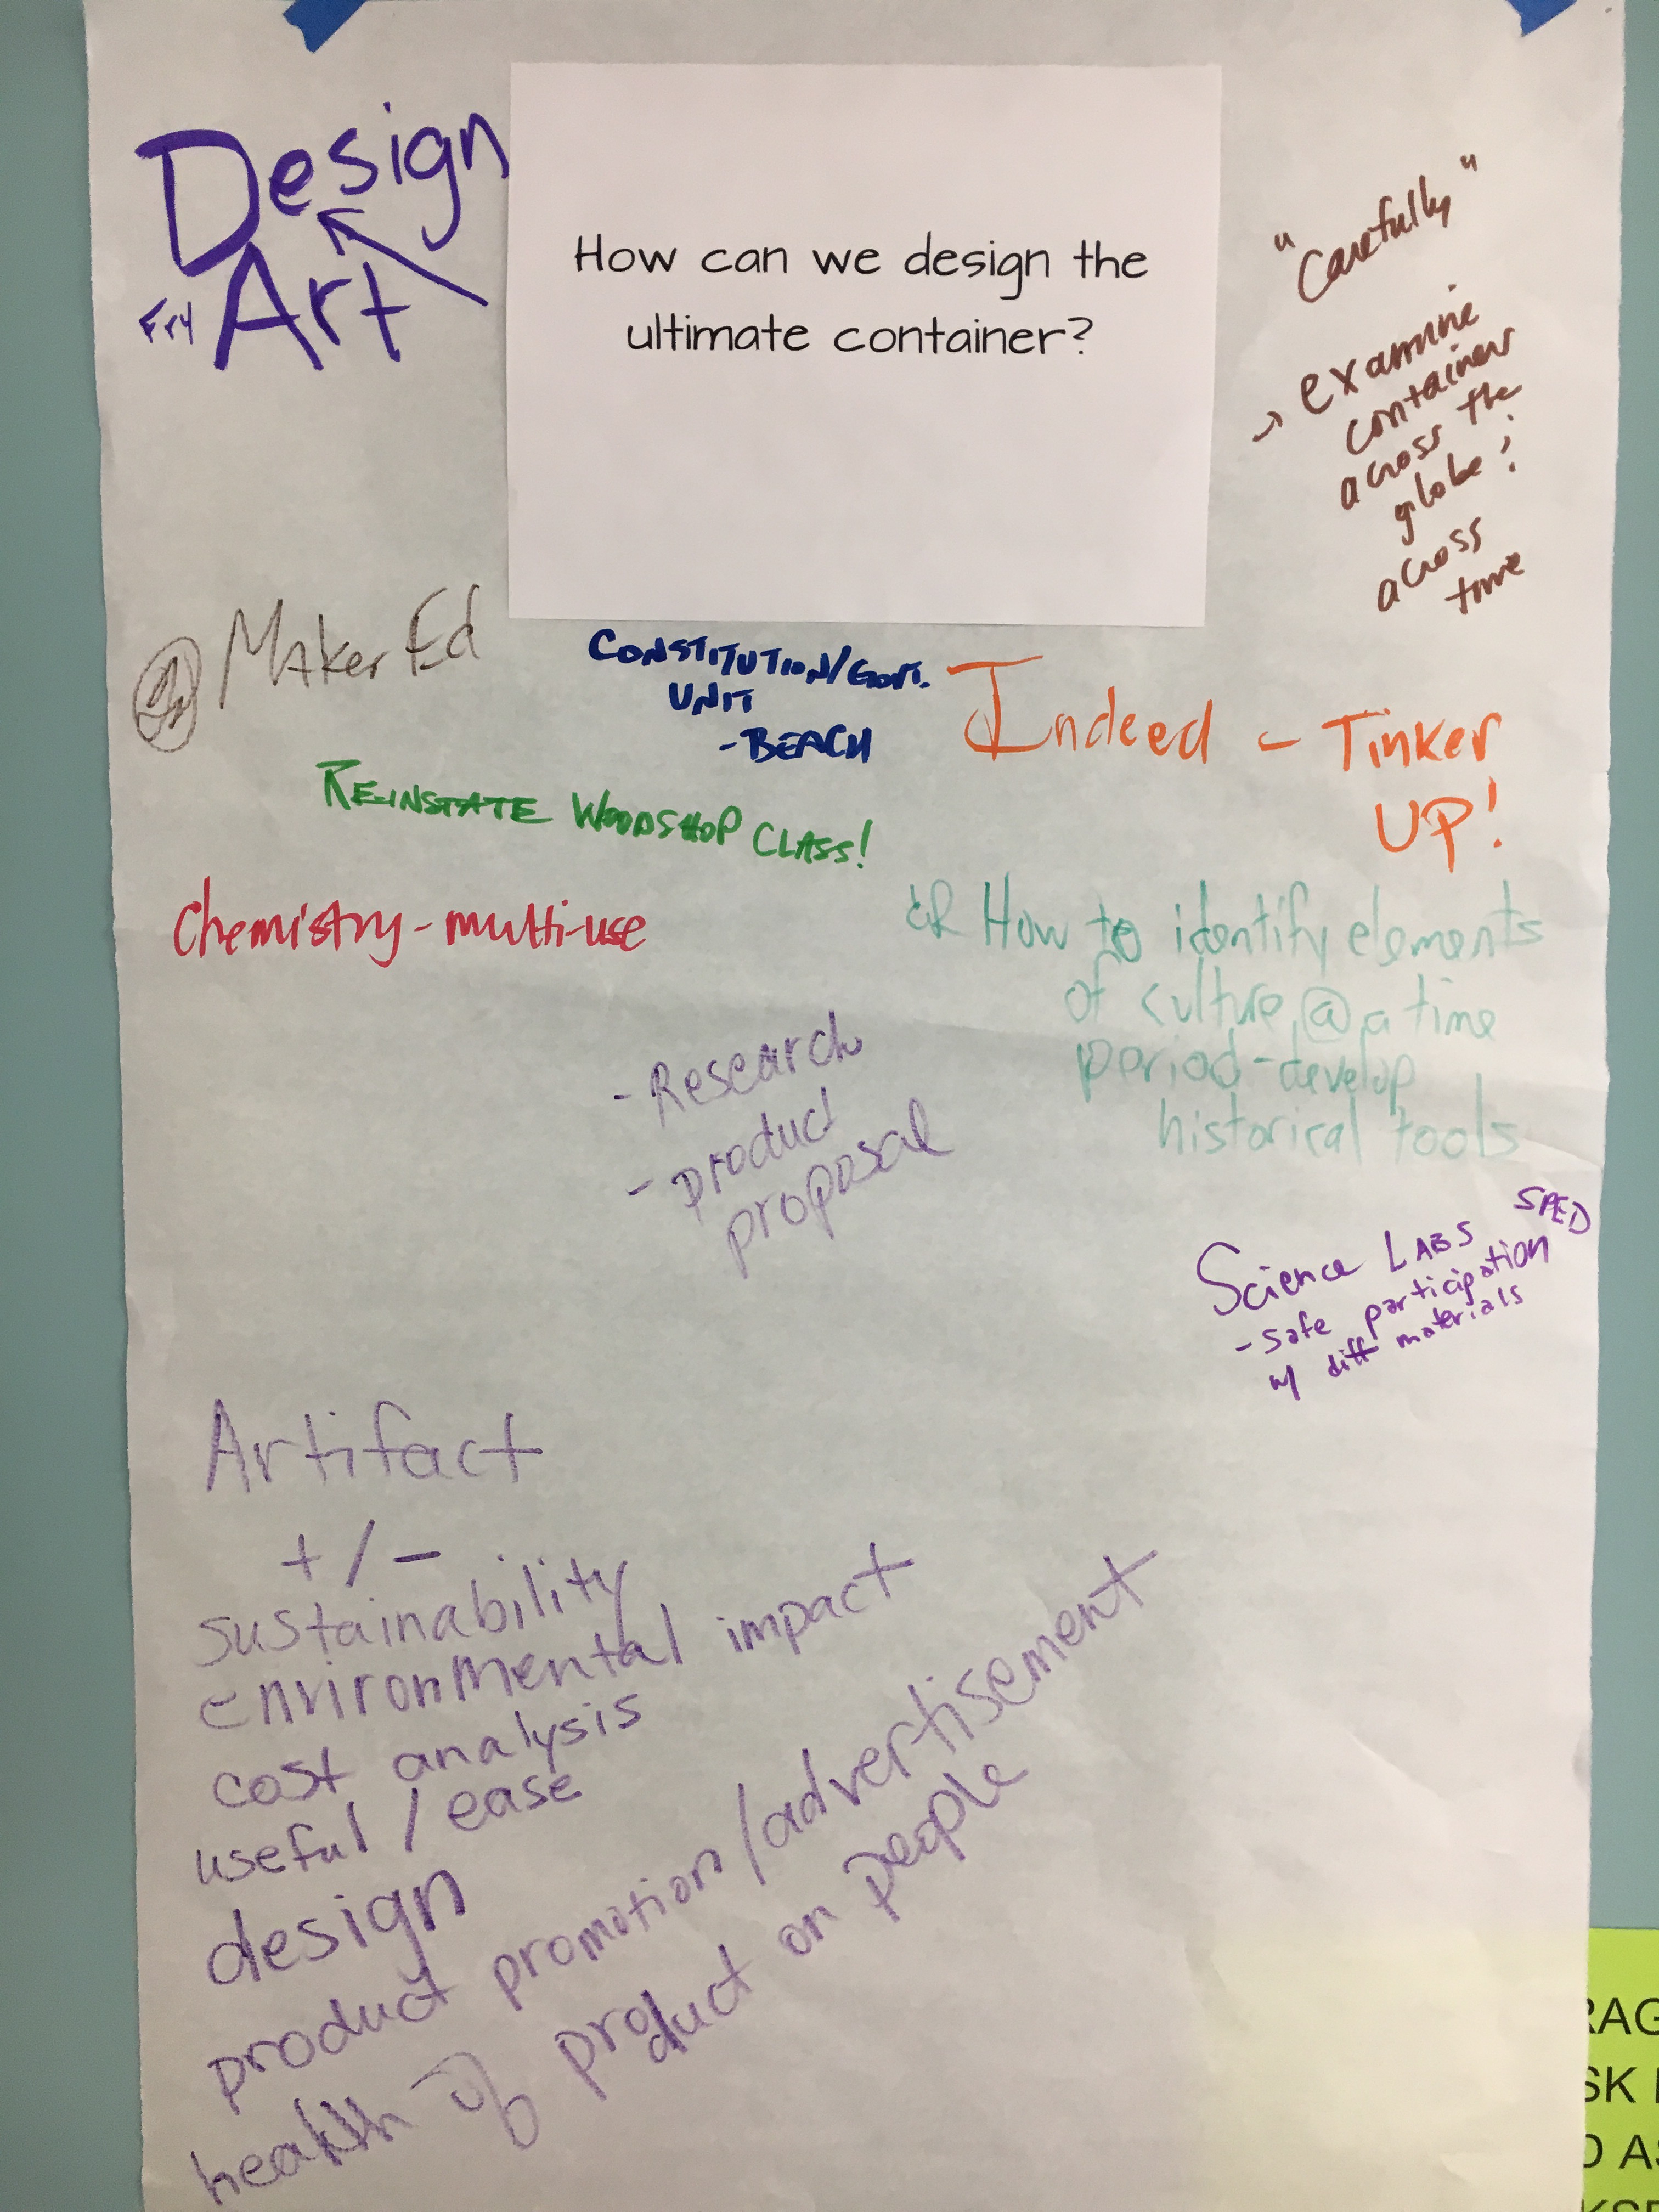 Design
Fry Art
How can we design the
ultimate container?
"Carefully"
→ examine
containers
across the
globe;
across
time
Maker Ed
CONSTITUTION/GOVT.
UNIT
-BEACH
Indeed - Tinker
UP!
REINSTATE WOODSHOP CLASS!
Chemistry-multi-use
How to identify elements
of culture @ a time
period-develop
historical tools
- Research
- product
proposal
SPED
Science LABS
- safe participation
w/ diff materials
Artifact
+/-
sustainability
environmental impact
cost analysis
useful/ease
design
product promotion/advertisement
health of product on people
RAG
SK
AS